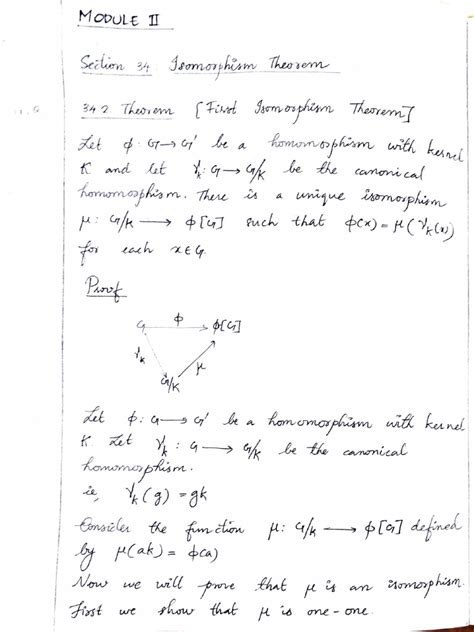 MODULE II
Section 34 Isomorphism Theorem
34.2 Theorem [First Isomorphism Theorem]
Let φ: G→G' be a homomorphism with kernel
K and let γₖ: G→G/K be the canonical
homomorphism. There is a unique isomorphism
μ: G/K → φ[G] such that φ(x) = μ(γₖ(x))
for each x∈G.
Proof
G φ φ[G]
γₖ μ
G/K
Let φ: G→G' be a homomorphism with kernel
K. Let γₖ: G → G/K be the canonical
homomorphism.
ie, γₖ(g) = gk
Consider the function μ: G/K → φ[G] defined
by μ(ak) = φ(a)
Now we will prove that μ is an isomorphism.
First we show that μ is one-one.